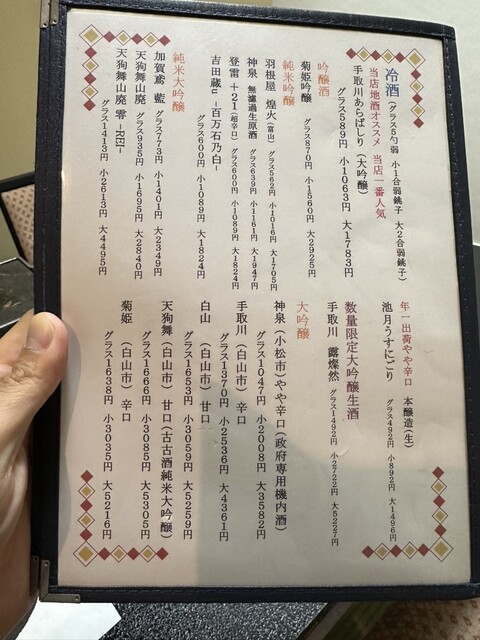 冷酒（グラス5勺弱 小1合弱銚子 大2合弱銚子）
当店地酒オススメ 当店一番人気
手取川あらばしり（大吟醸）
グラス589円 小1063円 大1783円
吟醸酒
菊姫吟醸
グラス870円 小1560円 大2925円
純米吟醸
羽根屋 煌火（富山） グラス562円 小1016円 大1705円
神泉 無濾過生原酒 グラス639円 小1161円 大1947円
登雷 +21（超辛口） グラス600円 小1089円 大1824円
吉田蔵u －百万石乃白－
グラス600円 小1089円 大1824円
純米大吟醸
加賀鳶 藍 グラス773円 小1401円 大2349円
天狗舞山廃 グラス935円 小1695円 大2840円
天狗舞山廃 零 -REI-
グラス1413円 小2613円 大4495円
年一出荷やや辛口 本醸造（生）
池月うすにごり グラス492円 小892円 大1496円
数量限定大吟醸生酒
手取川 露燦然 グラス1492円 小2722円 大5227円
大吟醸
神泉（小松市）やや辛口（政府専用機内酒）
グラス1047円 小2008円 大3582円
手取川（白山市）辛口
グラス1370円 小2536円 大4361円
白山（白山市）甘口
グラス1653円 小3059円 大5259円
天狗舞（白山市）甘口（古古酒純米大吟醸）
グラス1666円 小3085円 大5305円
菊姫（白山市）辛口
グラス1638円 小3035円 大5216円